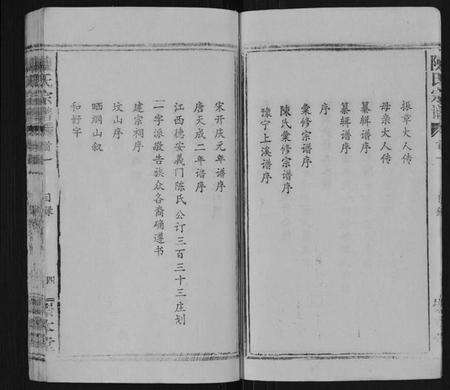 陳氏宗譜
振章大人传
母亲大人传
纂辑谱序
纂辑谱序
序
彙修宗谱序
陳氏彙修宗谱序
豫宁上溪谱序
宋开庆元年谱序
唐天成二年谱序
江西德安义门陈氏公订三百三十三庄划
一字派敬告族众各裔确遵书
建宗祠序
坟山序
晒网山叙
和好字
陳氏宗譜
卷首一
目录
四